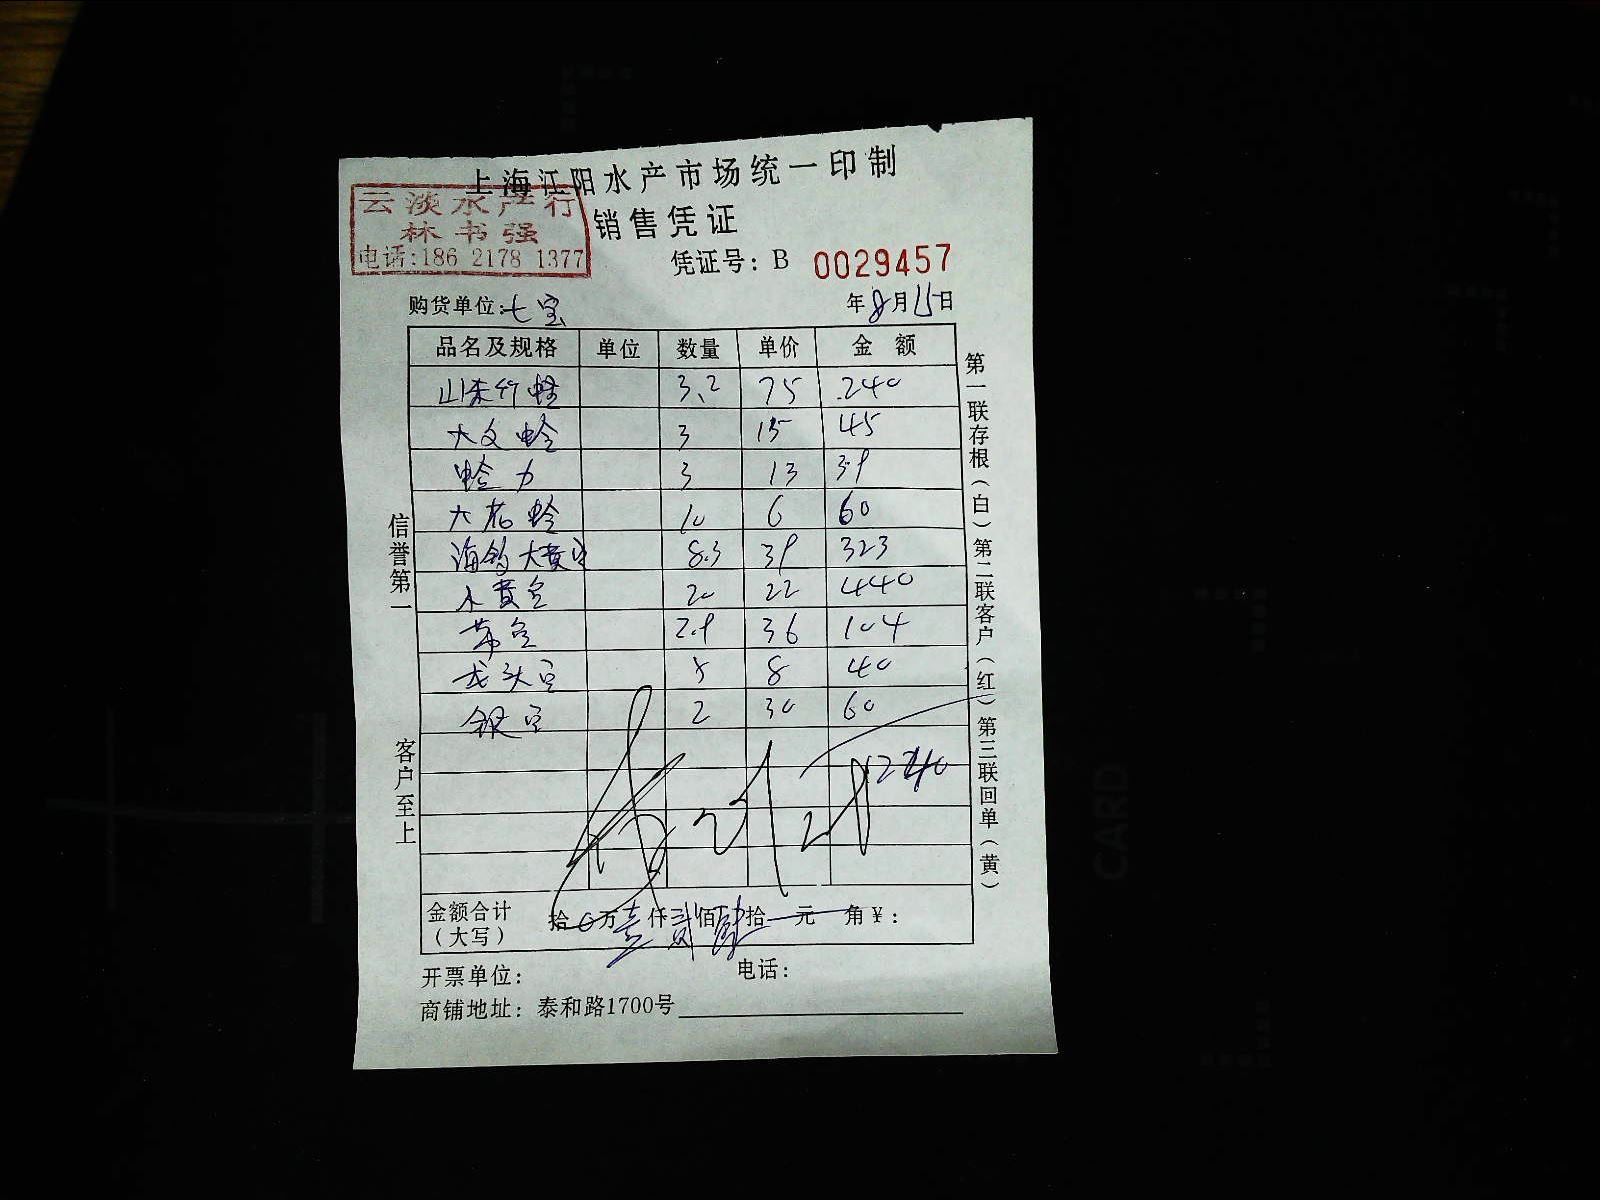 上海江阳水产市场统一印制
云淡水产行
林书强
电话:186 2178 1377
销售凭证
凭证号: B 0029457
购货单位:七宝
年8月15日
品名及规格 单位 数量 单价 金额
山东竹蛏 3.2 75 240
大文蛤 3 15 45
蛤力 3 13 39
大花蛤 10 6 60
海钓大黄 8.3 39 323
小黄 20 22 440
2.9 36 104
龙头 5 8 40
银 2 30 60
1240
金额合计
(大写)
拾 万壹仟贰佰肆拾 元 角¥:
开票单位:
电话:
商铺地址: 泰和路1700号
信誉第一
客户至上
第一联存根(白)第二联客户(红)第三联回单(黄)
CARD